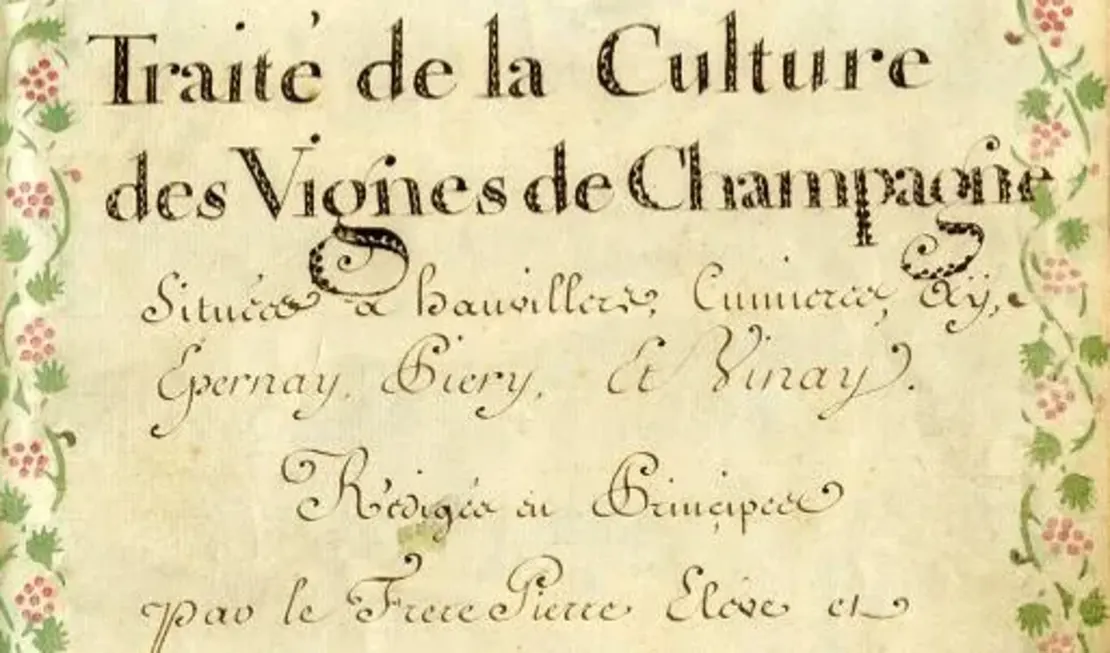 Traité de la Culture
des Vignes de Champagne
Situées a hauvillers, Cumieres, Aÿ,
Epernay, Piery, Et Vinay.
Rédigés en Principes
par le Frere Pierre Elève et